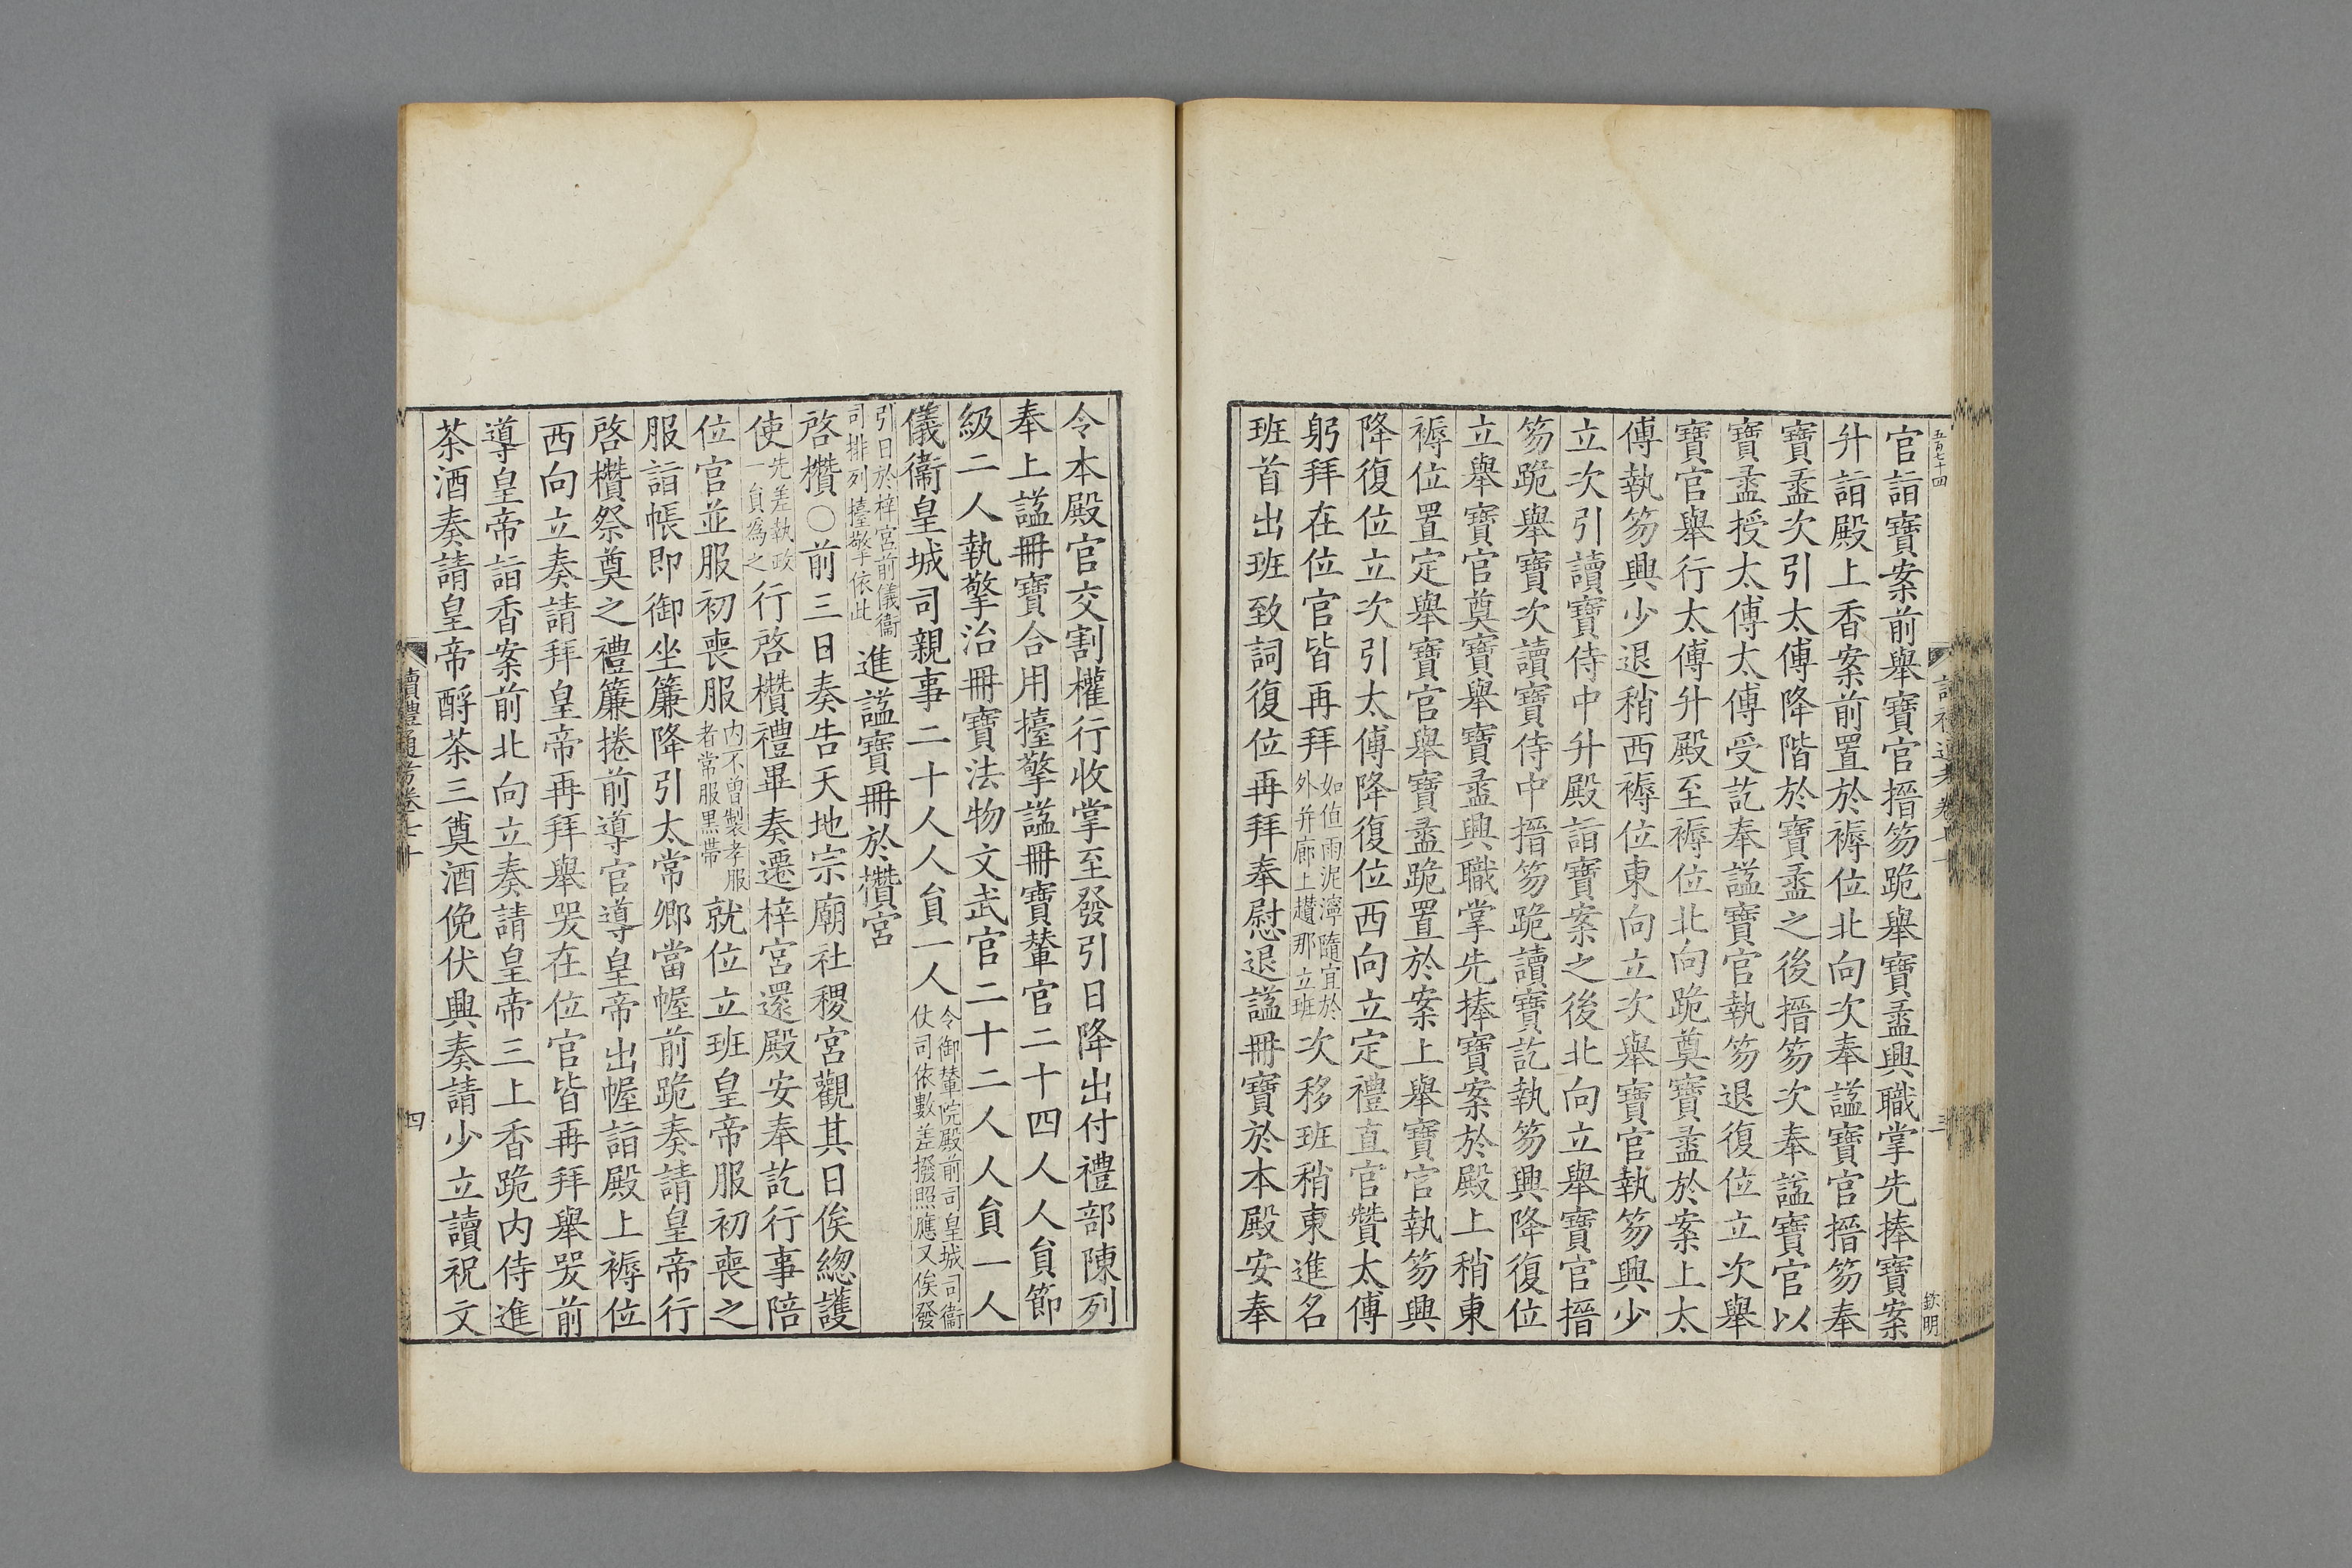 五百七十四
官詣寶案前舉寶官搢笏跪舉寶盝興職掌先捧寶案
升詣殿上香案前置於褥位北向次奉諡寶官搢笏奉
寶盝次引太傅降階於寶盝之後搢笏次奉諡寶官以
寶盝授太傅太傅受訖奉諡寶官執笏退復位立次舉
寶官舉行太傅升殿至褥位北向跪奠寶盝於案上太
傅執笏興少退稍西褥位東向立次舉寶官執笏興少
立次引讀寶侍中升殿詣寶案之後北向立舉寶官搢
笏跪舉寶次讀寶侍中搢笏跪讀寶訖執笏興降復位
立舉寶官奠寶舉寶盝興職掌先捧寶案於殿上稍東
褥位置定舉寶官舉寶盝跪置於案上舉寶官執笏興
降復位立次引太傅降復位西向立定禮直官贊太傅
躬拜在位官皆再拜如值雨泥濘隨宜於外并廊上趲那立班次移班稍東進名
班首出班致詞復位再拜奉慰退諡冊寶於本殿安奉
三
鈛明
令本殿官交割權行收掌至發引日降出付禮部陳列
奉上諡冊寶合用擡擎諡冊寶輦官二十四人人員節
級二人執擎冶冊寶法物文武官二十二人人員一人
儀衞皇城司親事二十人人員一人令御輦院殿前司皇城司衞仗司依數差撥照應又俟發
引日於梓宮前儀衞司排列擡擎依此進諡寶冊於攢宮
啓欑〇前三日奏告天地宗廟社稷宮觀其日俟總護
使先差執政一員為之行啓欑禮畢奏遷梓宮還殿安奉訖行事陪
位官並服初喪服內不曾製孝服者常服黑帶就位立班皇帝服初喪之
服詣帳即御坐簾降引太常卿當幄前跪奏請皇帝行
啓欑祭奠之禮簾捲前導官導皇帝出幄詣殿上褥位
西向立奏請拜皇帝再拜舉哭在位官皆再拜舉哭前
導皇帝詣香案前北向立奏請皇帝三上香跪內侍進
茶酒奏請皇帝酹茶三奠酒俛伏興奏請少立讀祝文
讀禮通考卷七十
四